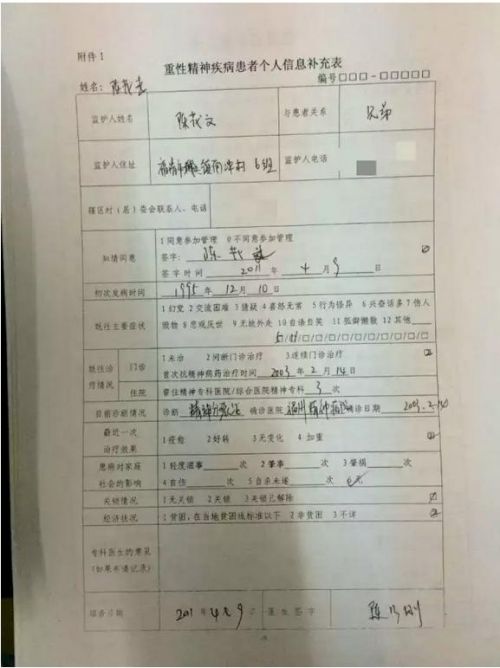 附件1
重性精神疾病患者个人信息补充表
姓名：陈茂 编号□□□-□□□□□
监护人姓名 陈茂文 与患者关系 兄弟
监护人住址 6组 监护人电话
辖区村（居）委会联系人、电话
1 同意参加管理 0 不同意参加管理
知情同意 签字：陈茂
签字时间 2011 年 4 月 9 日
初次发病时间 1995 年 12 月 10 日
1 幻觉 2 交流困难 3 猜疑 4 喜怒无常 5 行为怪异 6 兴奋话多 7 伤人
既往主要症状 毁物 8 悲观厌世 9 无故外走 10 自语自笑 11 孤僻懒散 12 其他
□/□/□/□/□/□/□/□
既往治疗情况 门诊 1 未治 2 间断门诊治疗 3 连续门诊治疗
首次抗精神病药治疗时间 2003 年 2 月 14 日
住院 曾住精神专科医院/综合医院精神专科 3 次
目前诊断情况 诊断 精神分裂症 确诊医院 福州 确诊日期 2003.2.14
最近一次治疗效果 1 痊愈 2 好转 3 无变化 4 加重
患病对家庭社会的影响 1 轻度滋事 次 2 肇事 次 3 肇祸 次
4 自伤 次 5 自杀未遂 次 0 无
关锁情况 1 无关锁 2 关锁 3 关锁已解除
经济状况 1 贫困，在当地贫困线标准以下 2 非贫困 3 不详
专科医生的意见
（如果有请记录）
填表日期 2011 年 4 月 9 日 医生签字 陈